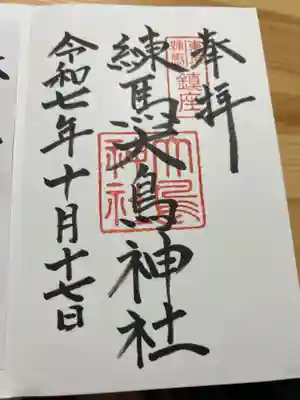 奉拝
練馬大鳥神社
令和七年十月十七日
鎮座
大鳥神社